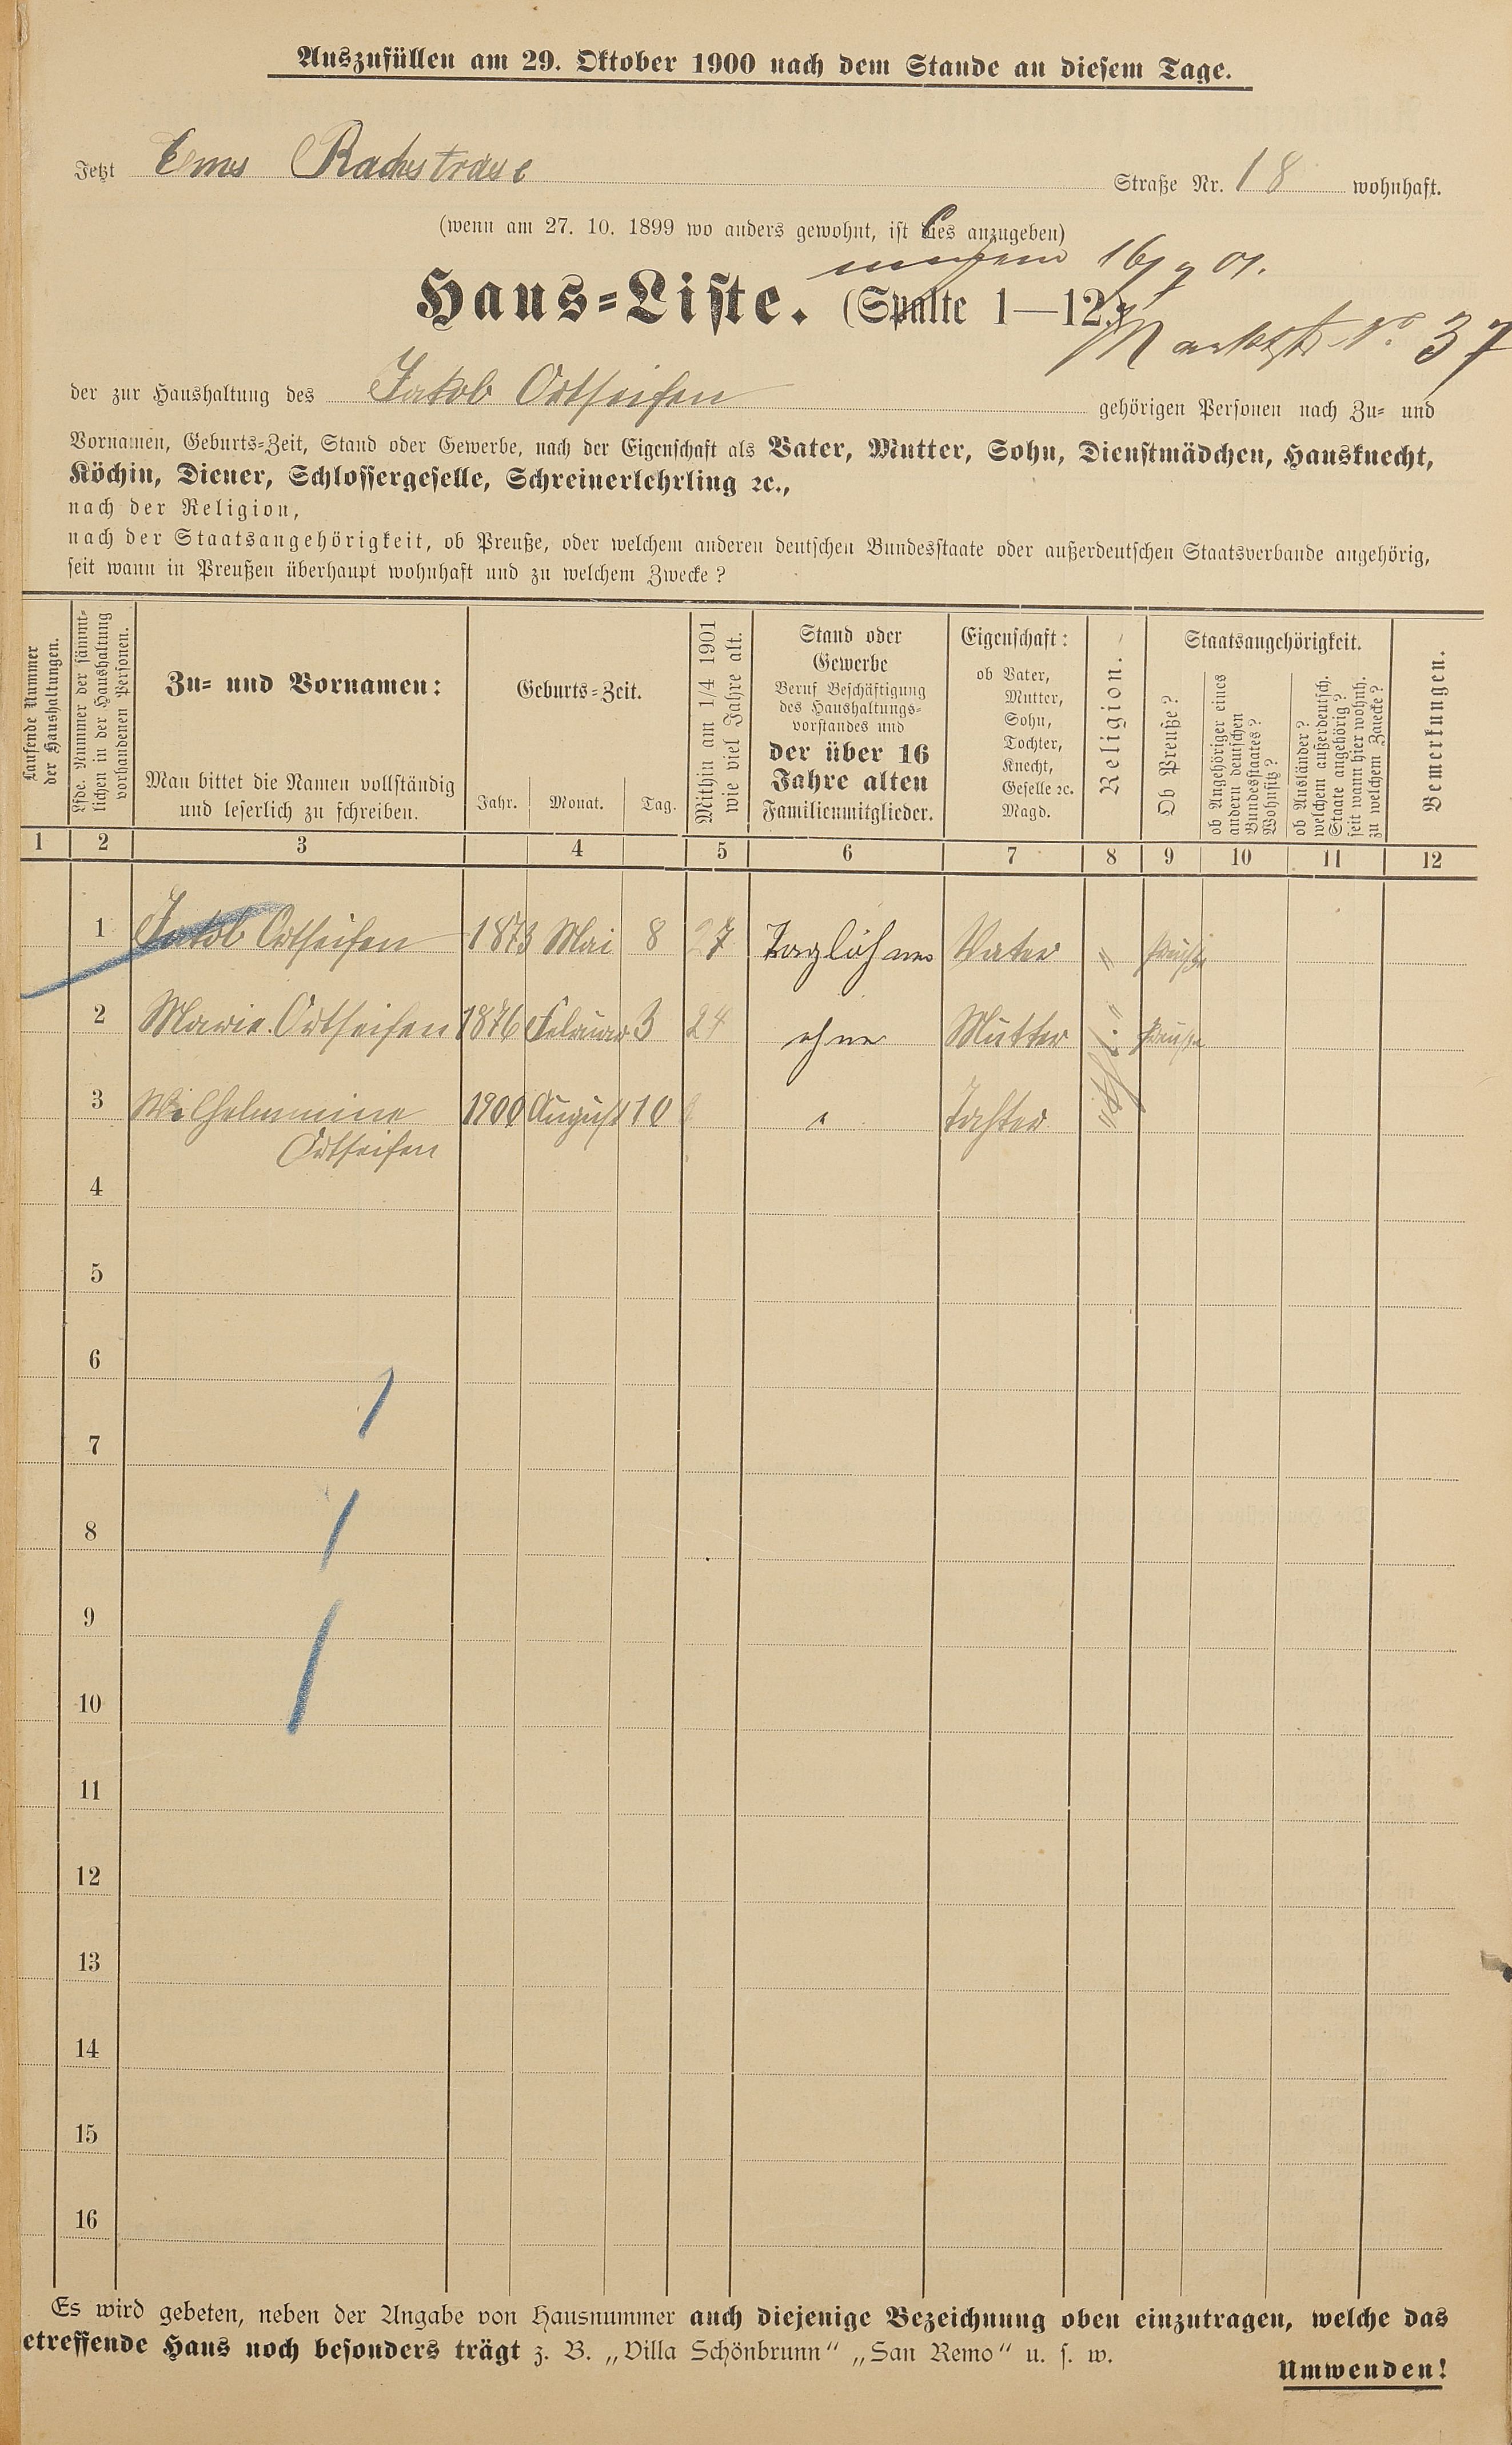 Auszufüllen am 29. Oktober 1900 nach dem Stande an diesem Tage.
Jetzt Ems Straße Nr. 18 wohnhaft.
(wenn am 27. 10. 1899 wo anders gewohnt, ist dies anzugeben)
Haus-Liste. (Spalte 1—12.)
Marktstr No. 37
der zur Haushaltung des Jakob Ortseifen gehörigen Personen nach Zu- und
Vornamen, Geburts-Zeit, Stand oder Gewerbe, nach der Eigenschaft als Vater, Mutter, Sohn, Dienstmädchen, Hausknecht,
Köchin, Diener, Schlossergeselle, Schreinerlehrling ꝛc.,
nach der Religion,
nach der Staatsangehörigkeit, ob Preuße, oder welchem anderen deutschen Bundesstaate oder außerdeutschen Staatsverbande angehörig,
seit wann in Preußen überhaupt wohnhaft und zu welchem Zwecke?
Laufende Nummer
der Haushaltungen.
Lfde. Nummer der sämmt-
lichen in der Haushaltung
vorhandenen Personen.
Zu- und Vornamen:
Man bittet die Namen vollständig
und leserlich zu schreiben.
Geburts-Zeit.
Jahr. Monat. Tag.
Mithin am 1/4 1901
wie viel Jahre alt.
Stand oder
Gewerbe
Beruf Beschäftigung
des Haushaltungs-
vorstandes und
der über 16
Jahre alten
Familienmitglieder.
Eigenschaft:
ob Vater,
Mutter,
Sohn,
Tochter,
Knecht,
Geselle ꝛc.
Magd.
Religion.
Staatsangehörigkeit.
Ob Preuße?
ob Angehöriger eines
andern deutschen
Bundesstaates?
Wohnsitz?
ob Ausländer?
welchem außerdeutsch.
Staate angehörig?
seit wann hier wohnh.
zu welchem Zwecke?
Bemerkungen.
1 2 3 4 5 6 7 8 9 10 11 12
1 Jakob Ortseifen 1873 Mai 8 27 Taglöhner Vater " Preuße
2 Marie Ortseifen 1876 Februar 3 24 ohne Mutter " Preuße
3 Wilhelmmine 1900 August 10 " Tochter "
Ortseifen
4
5
6
7
8
9
10
11
12
13
14
15
16
Es wird gebeten, neben der Angabe von Hausnummer auch diejenige Bezeichnung oben einzutragen, welche das
etreffende Haus noch besonders trägt z. B. „Villa Schönbrunn“ „San Remo“ u. s. w.
Umwenden!